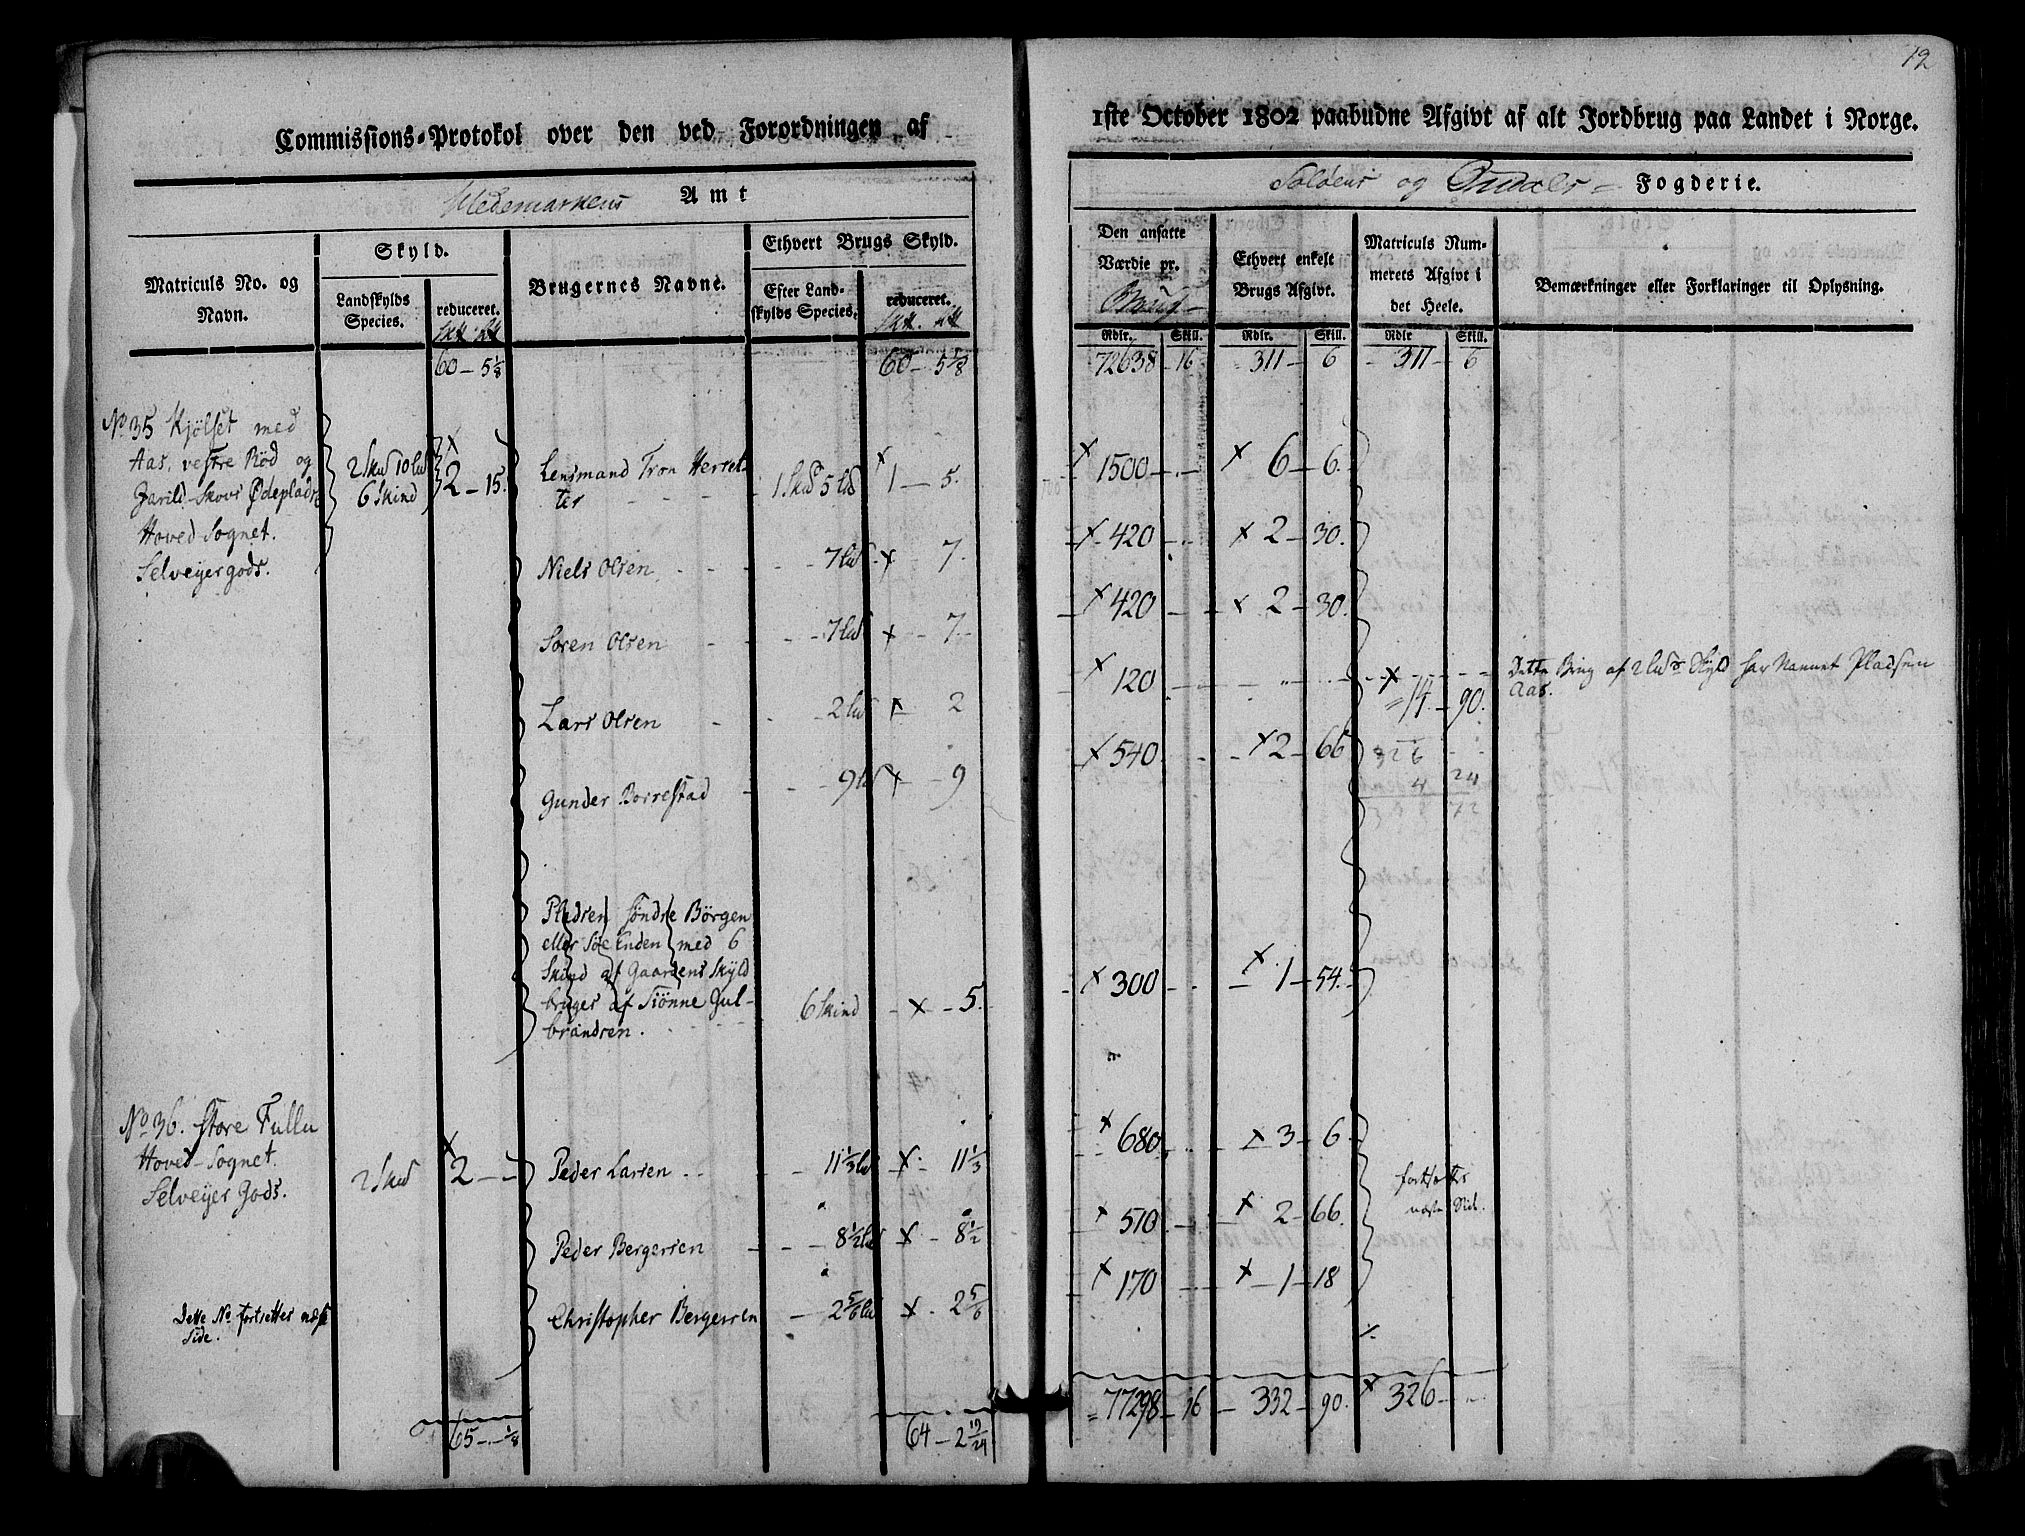 12
Commissions-Protokol over den ved Forordningen af
Hedemarkens Amt
Matriculs No. og Navn.
Skyld.
Landskylds Species.
reduceret.
Brugernes Navne.
Ethvert Brugs Skyld.
Efter Landskylds Species.
reduceret.
60 – 5 1/8
60 – 5 1/8
No 35 Kjölset med
Aas, vestre Röd og
Ødeplads
Hoved Sognet.
Selveyergods.
2 Skud 10 Lud
6 Skind
2 – 15.
Lensmand Tron Herset
ter
1 Skud 5 Lud
1 – 5.
Niels Olsen
7 Lud
7.
Soren Olsen
7 Lud
7.
Lars Olsen
2 Lud
2
Gunder Borrestad
9 Lud
9
Pladsen Söndre Börgen
eller Söe Enden med 6
Skind af Gaardens Skyld
bruges af Siönne Gul-
brandsen.
6 Skind
5.
No 36. Store Fullu
Hoved-Sognet.
Selveyer Gods.
2 Skud
2 –
Peder Larsen
11 1/3 Lud
11 1/3
Peder Bergersen
8 1/2 Lud
8 1/2
Christopher Bergersen
2 5/6 Lud
2 5/6
Dette No fortsettes næste
Side.
65 – 1/8
64 – 2 19/24
1ste October 1802 paabudne Afgivt af alt Jordbrug paa Landet i Norge.
Soløens og Fogderie.
Den ansatte Værdie pr. Brug
Ethvert enkelt Brugs Afgivt.
Matriculs Nummerets Afgivt i det Heele.
Bemærkninger eller Forklaringer til Oplysning.
Rdlr. Skill. Rdlr. Skill. Rdlr Skill.
72638 – 16 311 – 6 311 – 6
1500 6 – 6.
420 2 – 30.
420 2 – 30.
120
Dette Brug af 2 Luds Skyld har Navnet Pladsen
Aas.
14 – 90.
540 2 – 66
326
4 24
300 1 – 54
680 3 – 6
fortsættes
næste Side.
510 2 – 66.
170 1 – 18
77298 – 16 332 – 90. 326